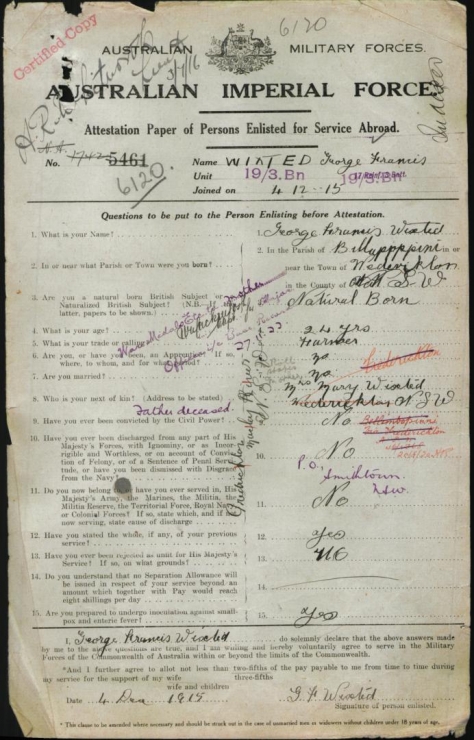 Certified Copy
6120
AUSTRALIAN MILITARY FORCES.
3/7/16
AUSTRALIAN IMPERIAL FORCE
Attestation Paper of Persons Enlisted for Service Abroad.
No. 5461
6120.
Name WIXTED George Francis
Unit 19/3.Bn 19/3.Bn
Joined on 4.12.15
Questions to be put to the Person Enlisting before Attestation.
1. What is your Name?
1. George Francis Wixted
2. In or near what Parish or Town were you born?
2. In the Parish of in or
near the Town of
in the County of N S W
3. Are you a natural born British Subject or
Naturalized British Subject? (N.B.
latter, papers to be shown.)
Natural Born
4. What is your age?
24 yrs
5. What is your trade or calling
Farmer
6. Are you, or have you been, an Apprentice? If so,
where, to whom, and for what
no
7. Are you married?
No
8. Who is your next of kin? (Address to be stated)
Mrs Mary Wixted
Frederickton NSW
Frederickton
Father deceased.
mother
9. Have you ever been convicted by the Civil Power?
No
10. Have you ever been discharged from any part of His
Majesty's Forces, with Ignominy, or as Incor-
rigible and Worthless, or on account of Conviction
of Felony, or of a Sentence of Penal Servi-
tude, or have you been dismissed with Disgrace
from the Navy?
10. No
P.O.
Smithtown
NSW.
11. Do you now belong to, or have you ever served in, His
Majesty's Army, the Marines, the Militia, the
Militia Reserve, the Territorial Force, Royal Navy
or Colonial Forces? If so, state which, and if not
now serving, state cause of discharge
11. No
12. Have you stated the whole, if any, of your previous
service?
12. yes
13. Have you ever been rejected as unfit for His Majesty's
Service? If so, on what grounds?
13. no
14. Do you understand that no Separation Allowance will
be issued in respect of your service beyond an
amount which together with Pay would reach
eight shillings per day
14.
15. Are you prepared to undergo inoculation against small-
pox and enteric fever?
15. Yes
I, George Francis Wixted do solemnly declare that the above answers made
by me to the above questions are true, and I am willing and hereby voluntarily agree to serve in the Military
Forces of the Commonwealth of Australia within or beyond the limits of the Commonwealth.
*And I further agree to allot not less than two-fifths of the pay payable to me from time to time during
three-fifths
my service for the support of my wife
wife and children
Date 4 Dec 1915
G F Wixted
Signature of person enlisted.
* This clause to be amended where necessary and should be struck out in the case of unmarried men or widowers without children under 18 years of age.